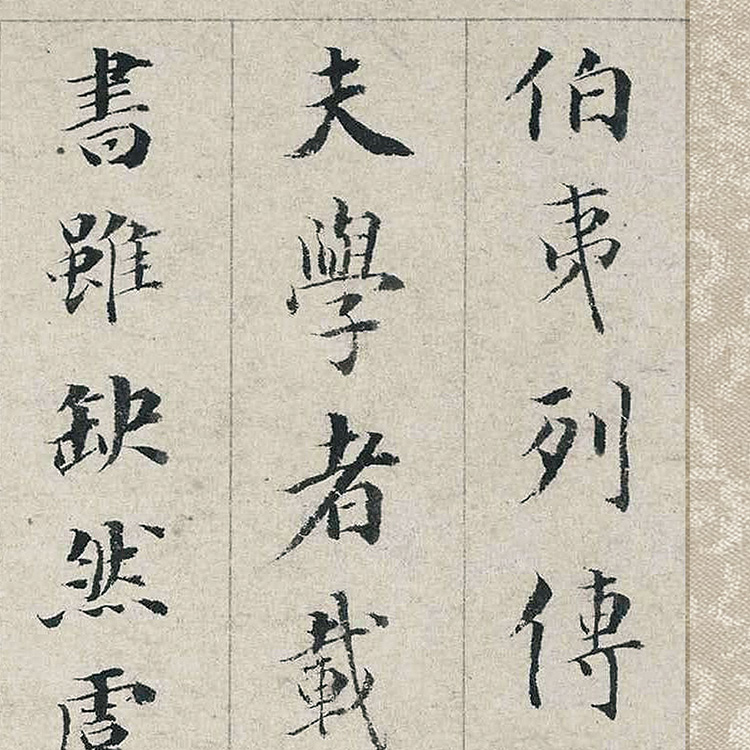 伯夷列傳
夫學者載
書雖缺然虞